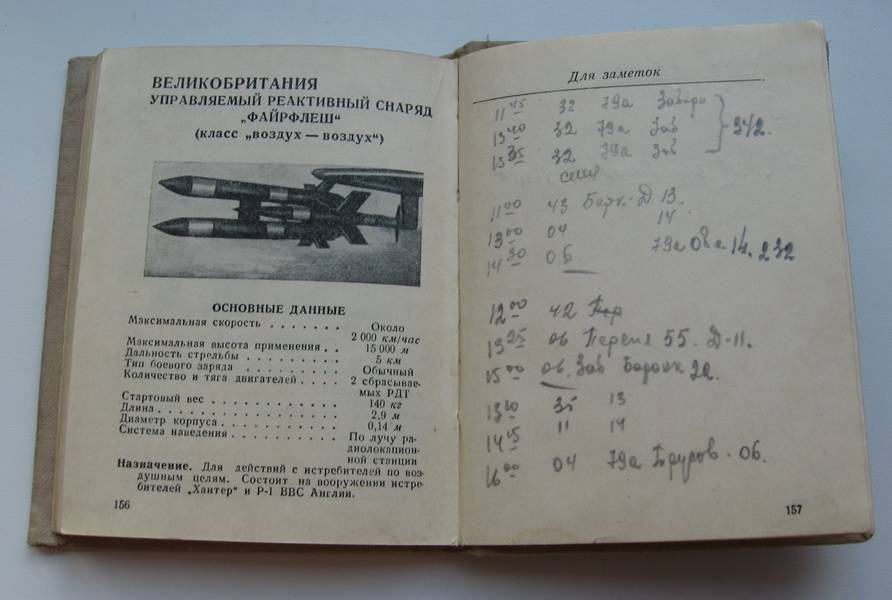 ВЕЛИКОБРИТАНИЯ
УПРАВЛЯЕМЫЙ РЕАКТИВНЫЙ СНАРЯД
„ФАЙРФЛЕШ“
(класс „воздух — воздух“)
ОСНОВНЫЕ ДАННЫЕ
Максимальная скорость . . . . . . . Около
2 000 км/час
Максимальная высота применения . . 15 000 м
Дальность стрельбы . . . . . . . . . 5 км
Тип боевого заряда . . . . . . . . . Обычный
Количество и тяга двигателей . . . . 2 сбрасывае-
мых РДТ
Стартовый вес . . . . . . . . . . . 140 кг
Длина . . . . . . . . . . . . . . . 2,9 м
Диаметр корпуса . . . . . . . . . . 0,14 м
Система наведения . . . . . . . . . По лучу ра-
диолокацион-
ной станции
Назначение. Для действий с истребителей по воз-
душным целям. Состоит на вооружении истре-
бителей „Хантер“ и Р-1 ВВС Англии.
156
Для заметок
11 45 32 79а
13 40 32 79а Зав 342.
15 35 32 79а Зав
11 00 43 Д 13.
14
13 00 04
14 30 06 79а 14. 232
12 00 42
13 25 06 55. Д-11.
15 00 06. Зав 22.
13 35 13
14 11 14
16 00 04 79а 06.
157